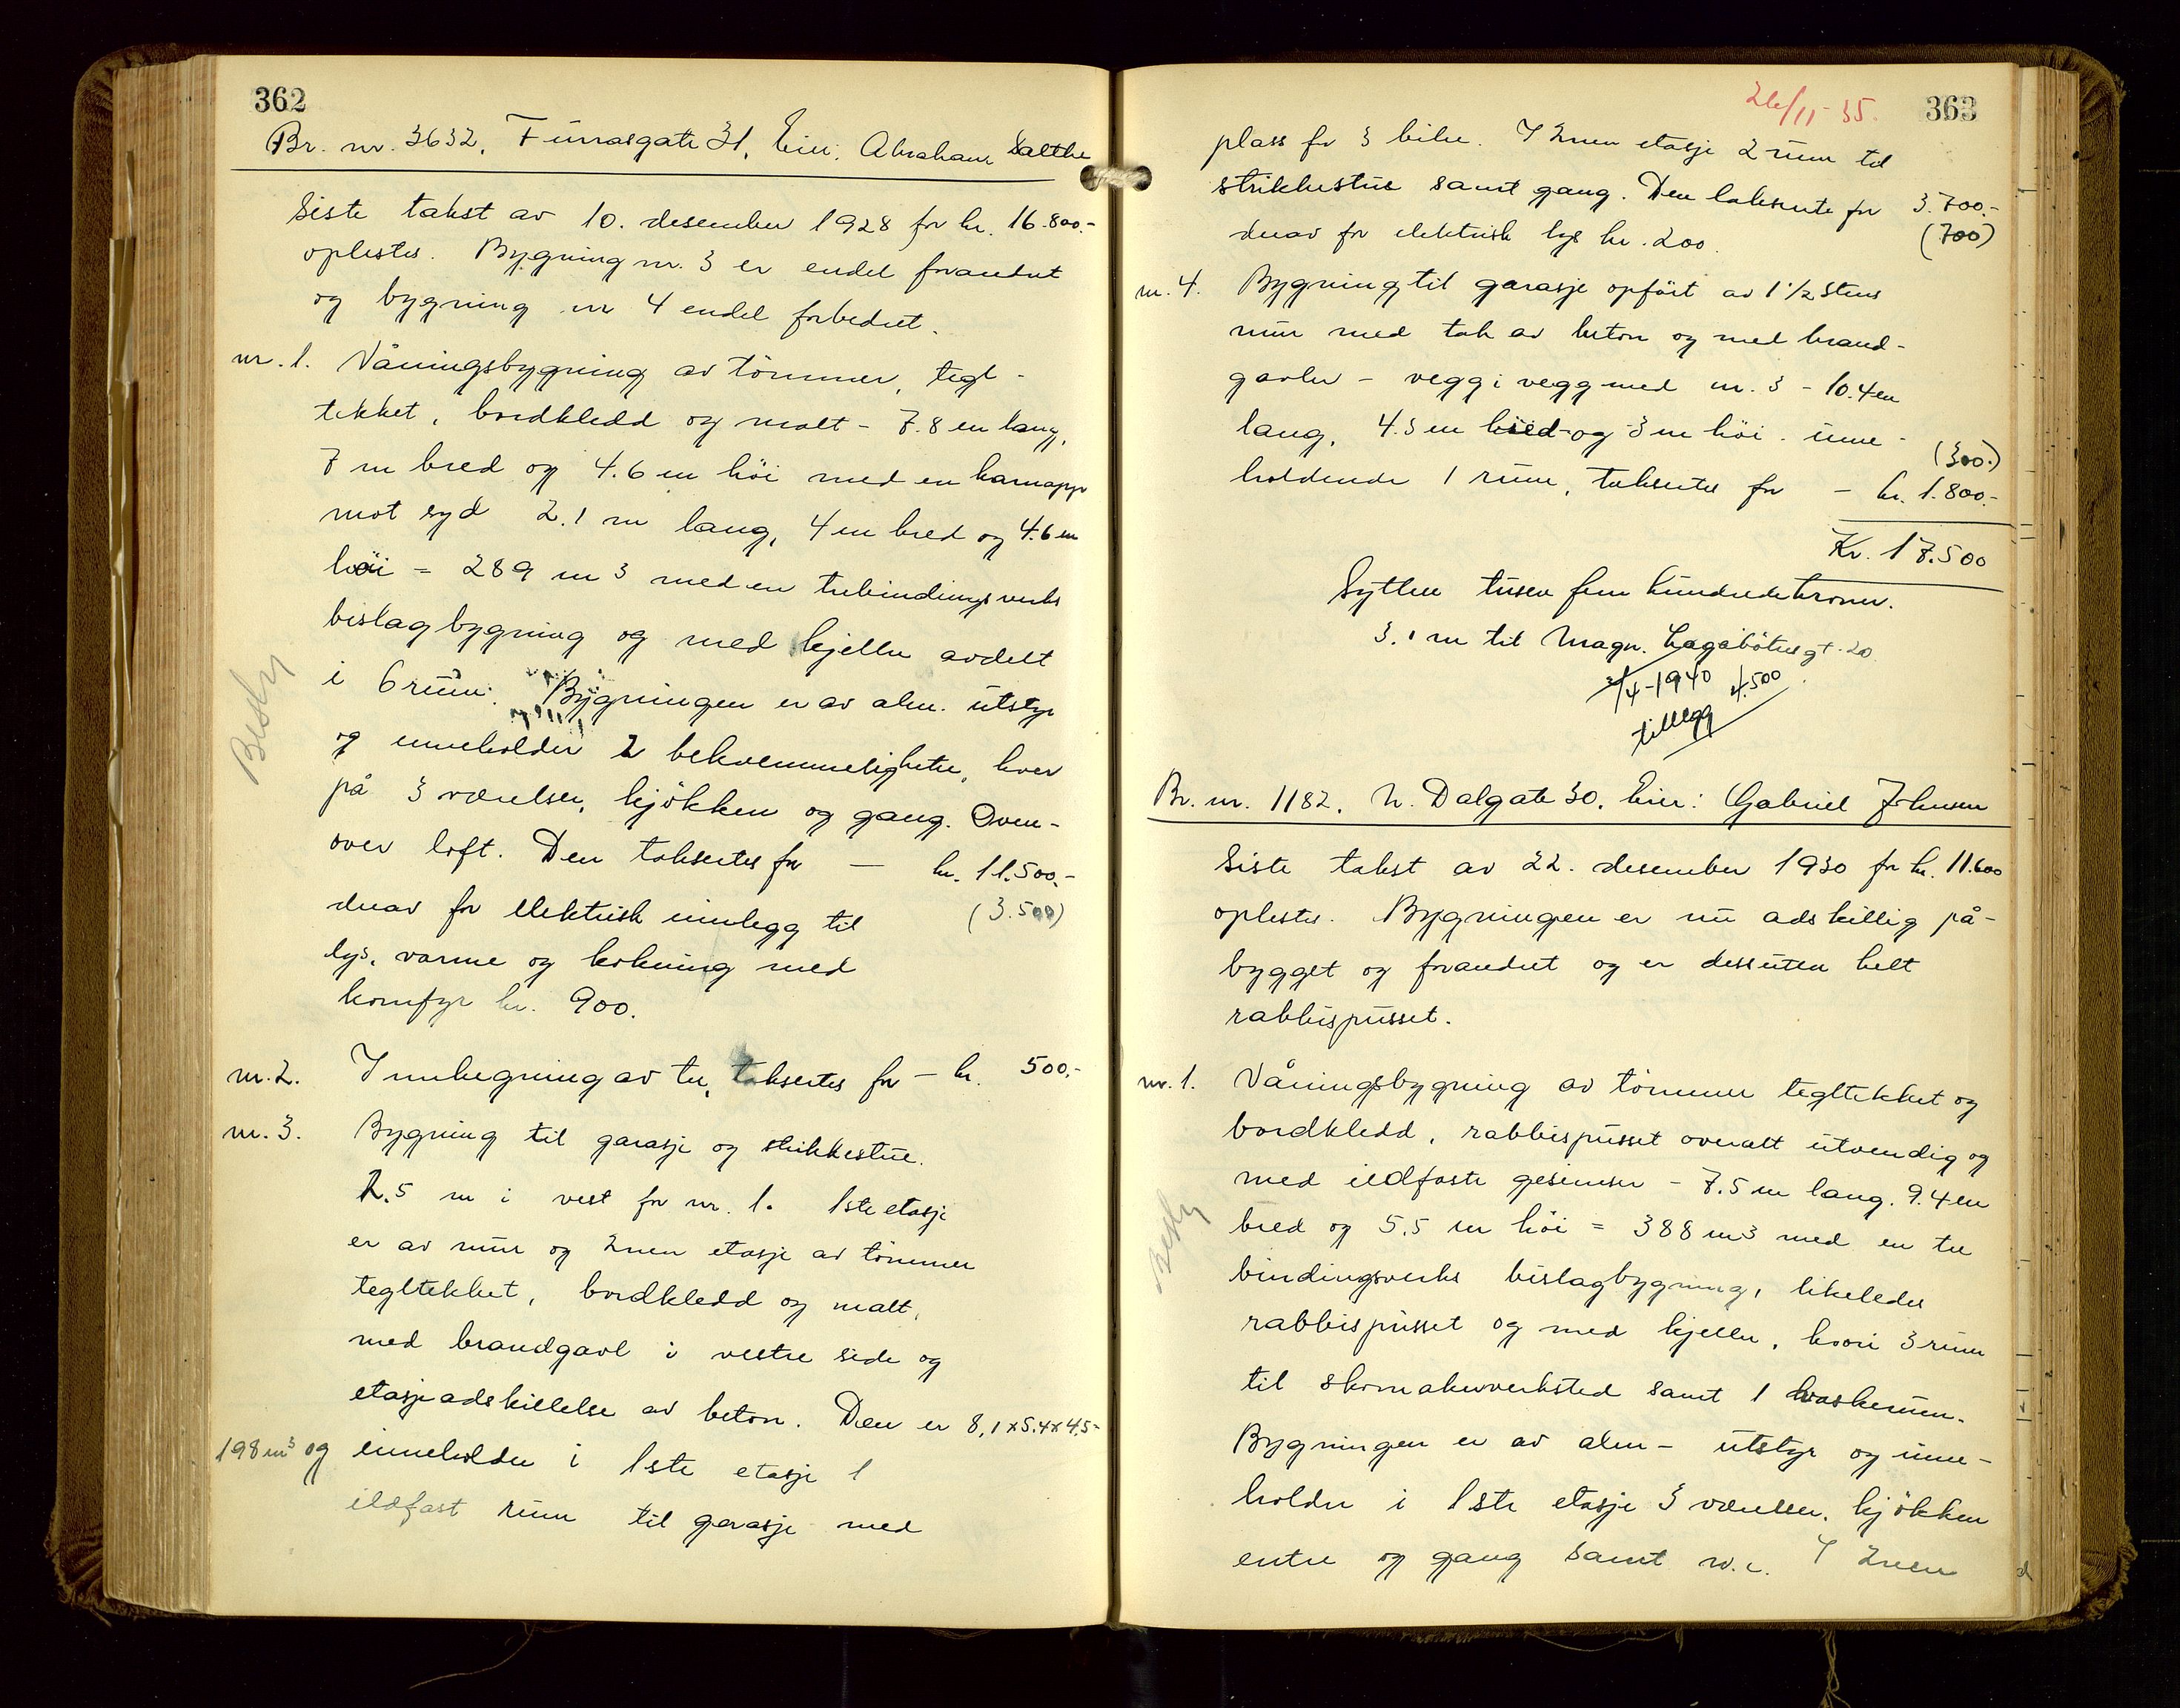 362
Br. nr. 3632. Furrasgate 31. Eier: Abraham Salthe
Siste takst av 10. desember 1928 for kr. 16.800.-
oplestes. Bygning nr. 3 er endel forandret
og bygning nr 4 endel forbedret.
nr. 1. Våningsbygning av tömmer, tegl-
tekket, bordkledd og malt - 7.8 m lang,
7 m bred og 4.6 m höi med en karnapp
mot syd 2.1 m lang, 4 m bred og 4.6 m
höi = 289 m3 med en trebindingsverks
bislagbygning og med kjeller avdelt
i 6 rum. Bygningen er av alm. utstyr
og inneholder 2 bekvemmeligheter, hver
på 3 værelser, kjökken og gang. Oven-
over loft. Den takseres for — kr. 11.500.-
derav for elektrisk innlegg til (3.500)
lys, varme og kokning med
komfyr kr. 900.
Besty
nr. 2. Innhegning av tre, takseres for - kr. 500.-
nr. 3. Bygning til garasje og strikkestue.
2.5 m i vest for nr. 1. 1ste etasje
er av mur og 2nen etasje av tömmer
tegltekket, bordkledd og malt,
med brandgavl i vestre side og
etasjeadskillelse av beton. Den er 8,1x5.4x4.5=
198 m3 og inneholder i 1ste etasje 1
ildfast rum til garasje med
26/11-35. 363
plass for 3 biler. I 2nen etasje 2 rum til
strikkestue samt gang. Den takseres for 3.700.-
derav for elektrisk lys kr. 200. (700)
nr. 4. Bygning til garasje opfört av 1 1/2 stens
mur med tak av beton og med brand-
gavler - vegg i vegg med nr. 3 - 10.4 m
lang, 4.5 m bred og 3 m höi. inne-
(300.)
holdende 1 rum, takseres for - kr. 1.800.-
Kr. 17.500
Sytten tusen fem hundrede kroner.
3.1 m til Magn. Lagabötersgt. 20
/4-1940 4.500
tillegg
Br. nr. 1182. N. Dalgate 30. Eier: Gabriel Johnsen
Siste takst av 22. desember 1930 for kr. 11.600
oplestes. Bygningen er nu adskillig på-
bygget og forandret og er dessuten helt
rabbispusset.
nr. 1. Våningsbygning av tömmer tegltekket og
bordkledd, rabbispusset overalt utvendig og
med ildfaste gesimser - 7.5 m lang. 9.4 m
bred og 5.5 m höi = 388 m3 med en tre
bindingsverks bislagbygning, likeledes
rabbispusset og med kjeller, hvori 3 rum
til skomakerverksted samt 1 vaskerum.
Bygningen er av alm- utstyr og inne-
holder i 1ste etasje 3 værelser, kjökken
entre og gang samt w.c. I 2nen
Besty